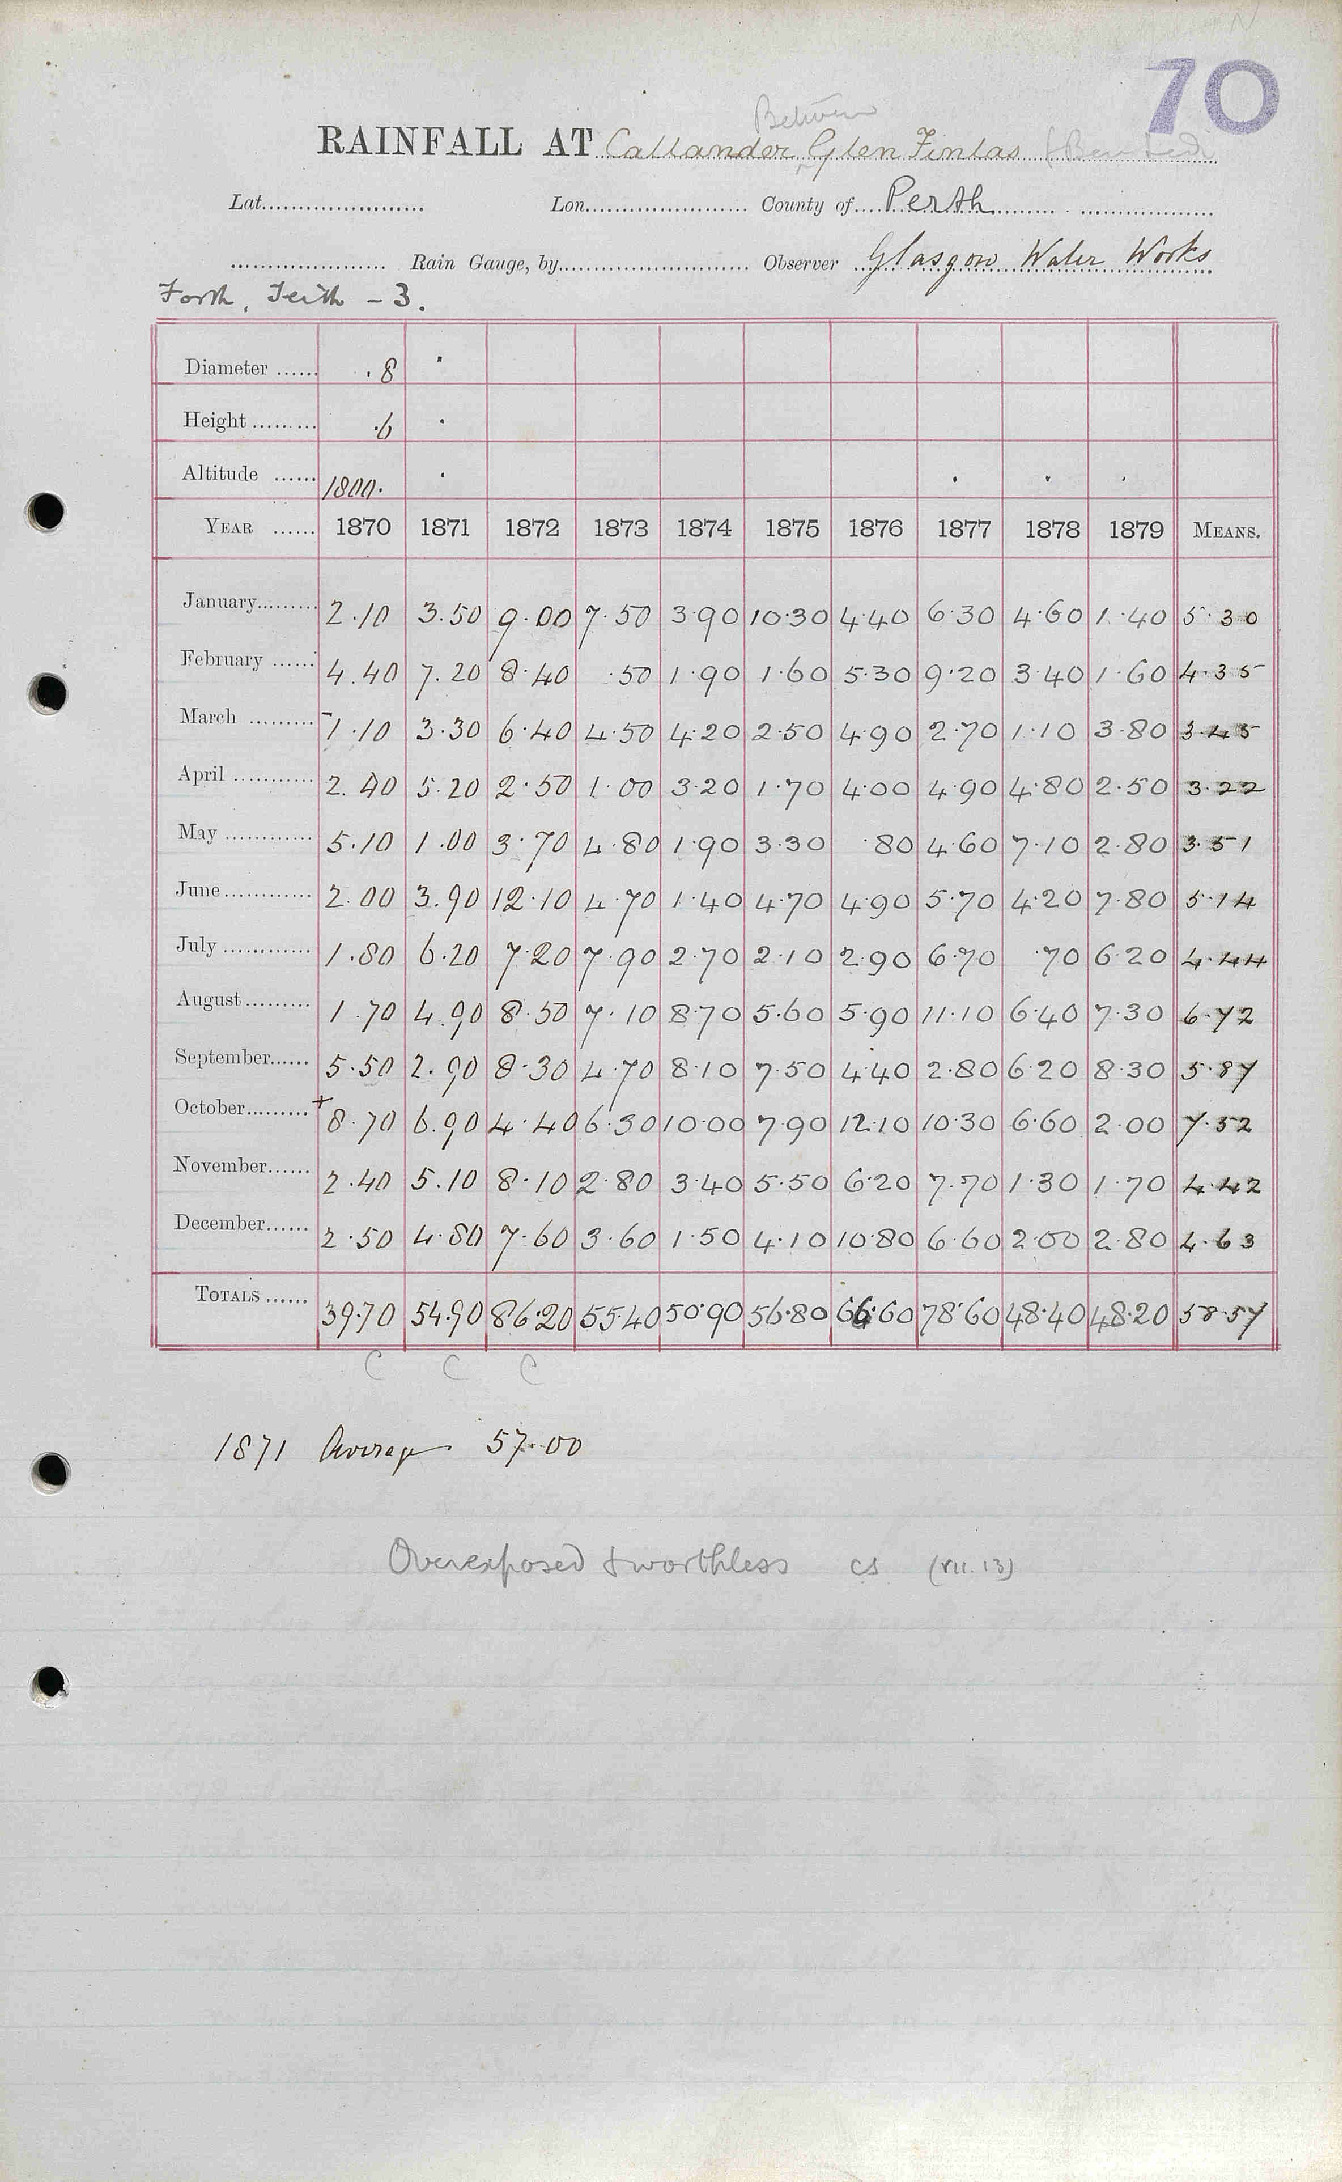 70
Between
RAINFALL AT Callander, Glen Finlas
Lat. Lon. County of Perth
Rain Gauge, by Observer Glasgow Water Works
Forth, Teith - 3.
Diameter .8
Height .6
Altitude 1800.
YEAR 1870 1871 1872 1873 1874 1875 1876 1877 1878 1879 MEANS.
January 2.10 3.50 9.00 7.50 3.90 10.30 4.40 6.30 4.60 1.40 5.30
February 4.40 7.20 8.40 .50 1.90 1.60 5.30 9.20 3.40 1.60 4.35
March 1.10 3.30 6.40 4.50 4.20 2.50 4.90 2.70 1.10 3.80 3.45
April 2.40 5.20 2.50 1.00 3.20 1.70 4.00 4.90 4.80 2.50 3.22
May 5.10 1.00 3.70 4.80 1.90 3.30 .80 4.60 7.10 2.80 3.51
June 2.00 3.90 12.10 4.70 1.40 4.70 4.90 5.70 4.20 7.80 5.14
July 1.80 6.20 7.20 7.90 2.70 2.10 2.90 6.70 .70 6.20 4.44
August 1.70 4.90 8.50 7.10 8.70 5.60 5.90 11.10 6.40 7.30 6.72
September 5.50 2.90 8.30 4.70 8.10 7.50 4.40 2.80 6.20 8.30 5.87
October + 8.70 6.90 4.40 6.30 10.00 7.90 12.10 10.30 6.60 2.00 7.52
November 2.40 5.10 8.10 2.80 3.40 5.50 6.20 7.70 1.30 1.70 4.42
December 2.50 4.80 7.60 3.60 1.50 4.10 10.80 6.60 2.00 2.80 4.63
TOTALS 39.70 54.90 86.20 55.40 50.90 56.80 66.60 78.60 48.40 48.20 58.57
C C C
1871 Average 57.00
Overexposed & worthless cs (vii.13)